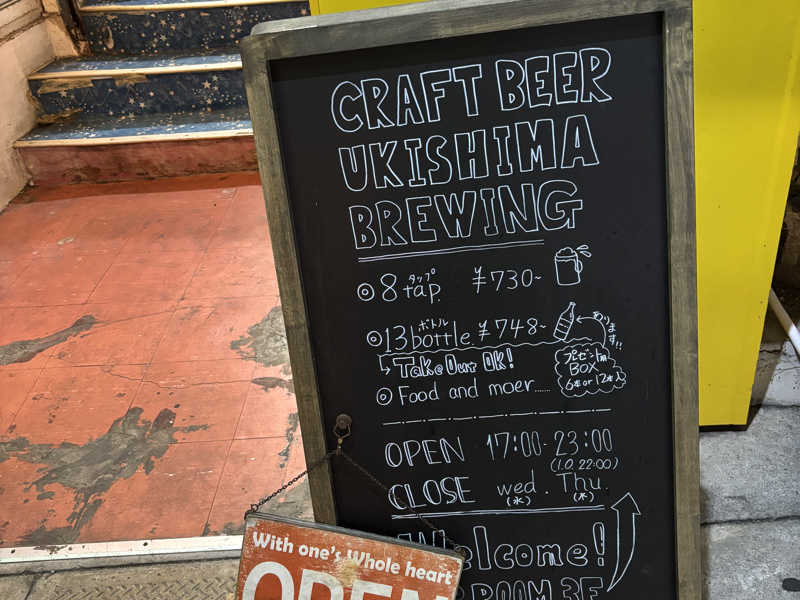 CRAFT BEER
UKISHIMA
BREWING
◎8 tap ¥730~
タップ
◎13 bottle ¥748~
ボトル
あります!!
↳Take Out OK!
プレゼント用
BOX
6本or12本入
◎Food and moer......
OPEN 17:00-23:00
(L.O.22:00)
CLOSE wed. Thu.
(水) (木)
Welcome!
ROOM 3F
With one's Whole heart
OPEN